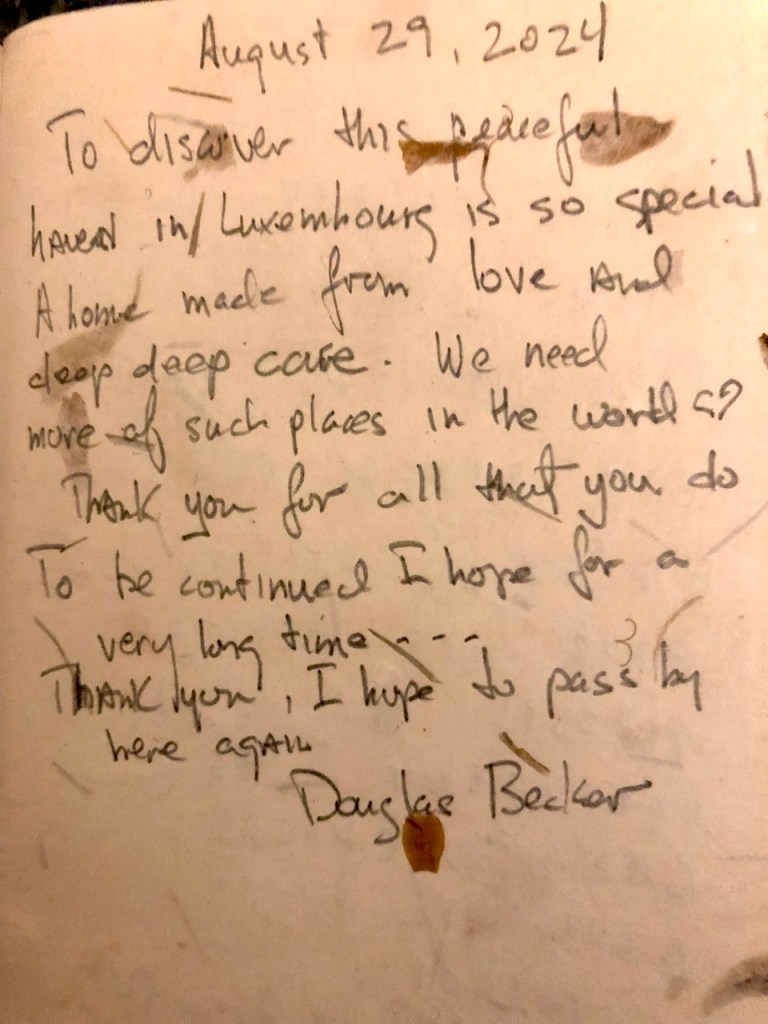 August 29, 2024
To discover this peaceful
haven in Luxembourg is so special
A home made from love and
deep deep care. We need
more of such places in the world
Thank you for all that you do
To be continued I hope for a
very long time ----
Thank you, I hope to pass by
here again
Douglas Becker